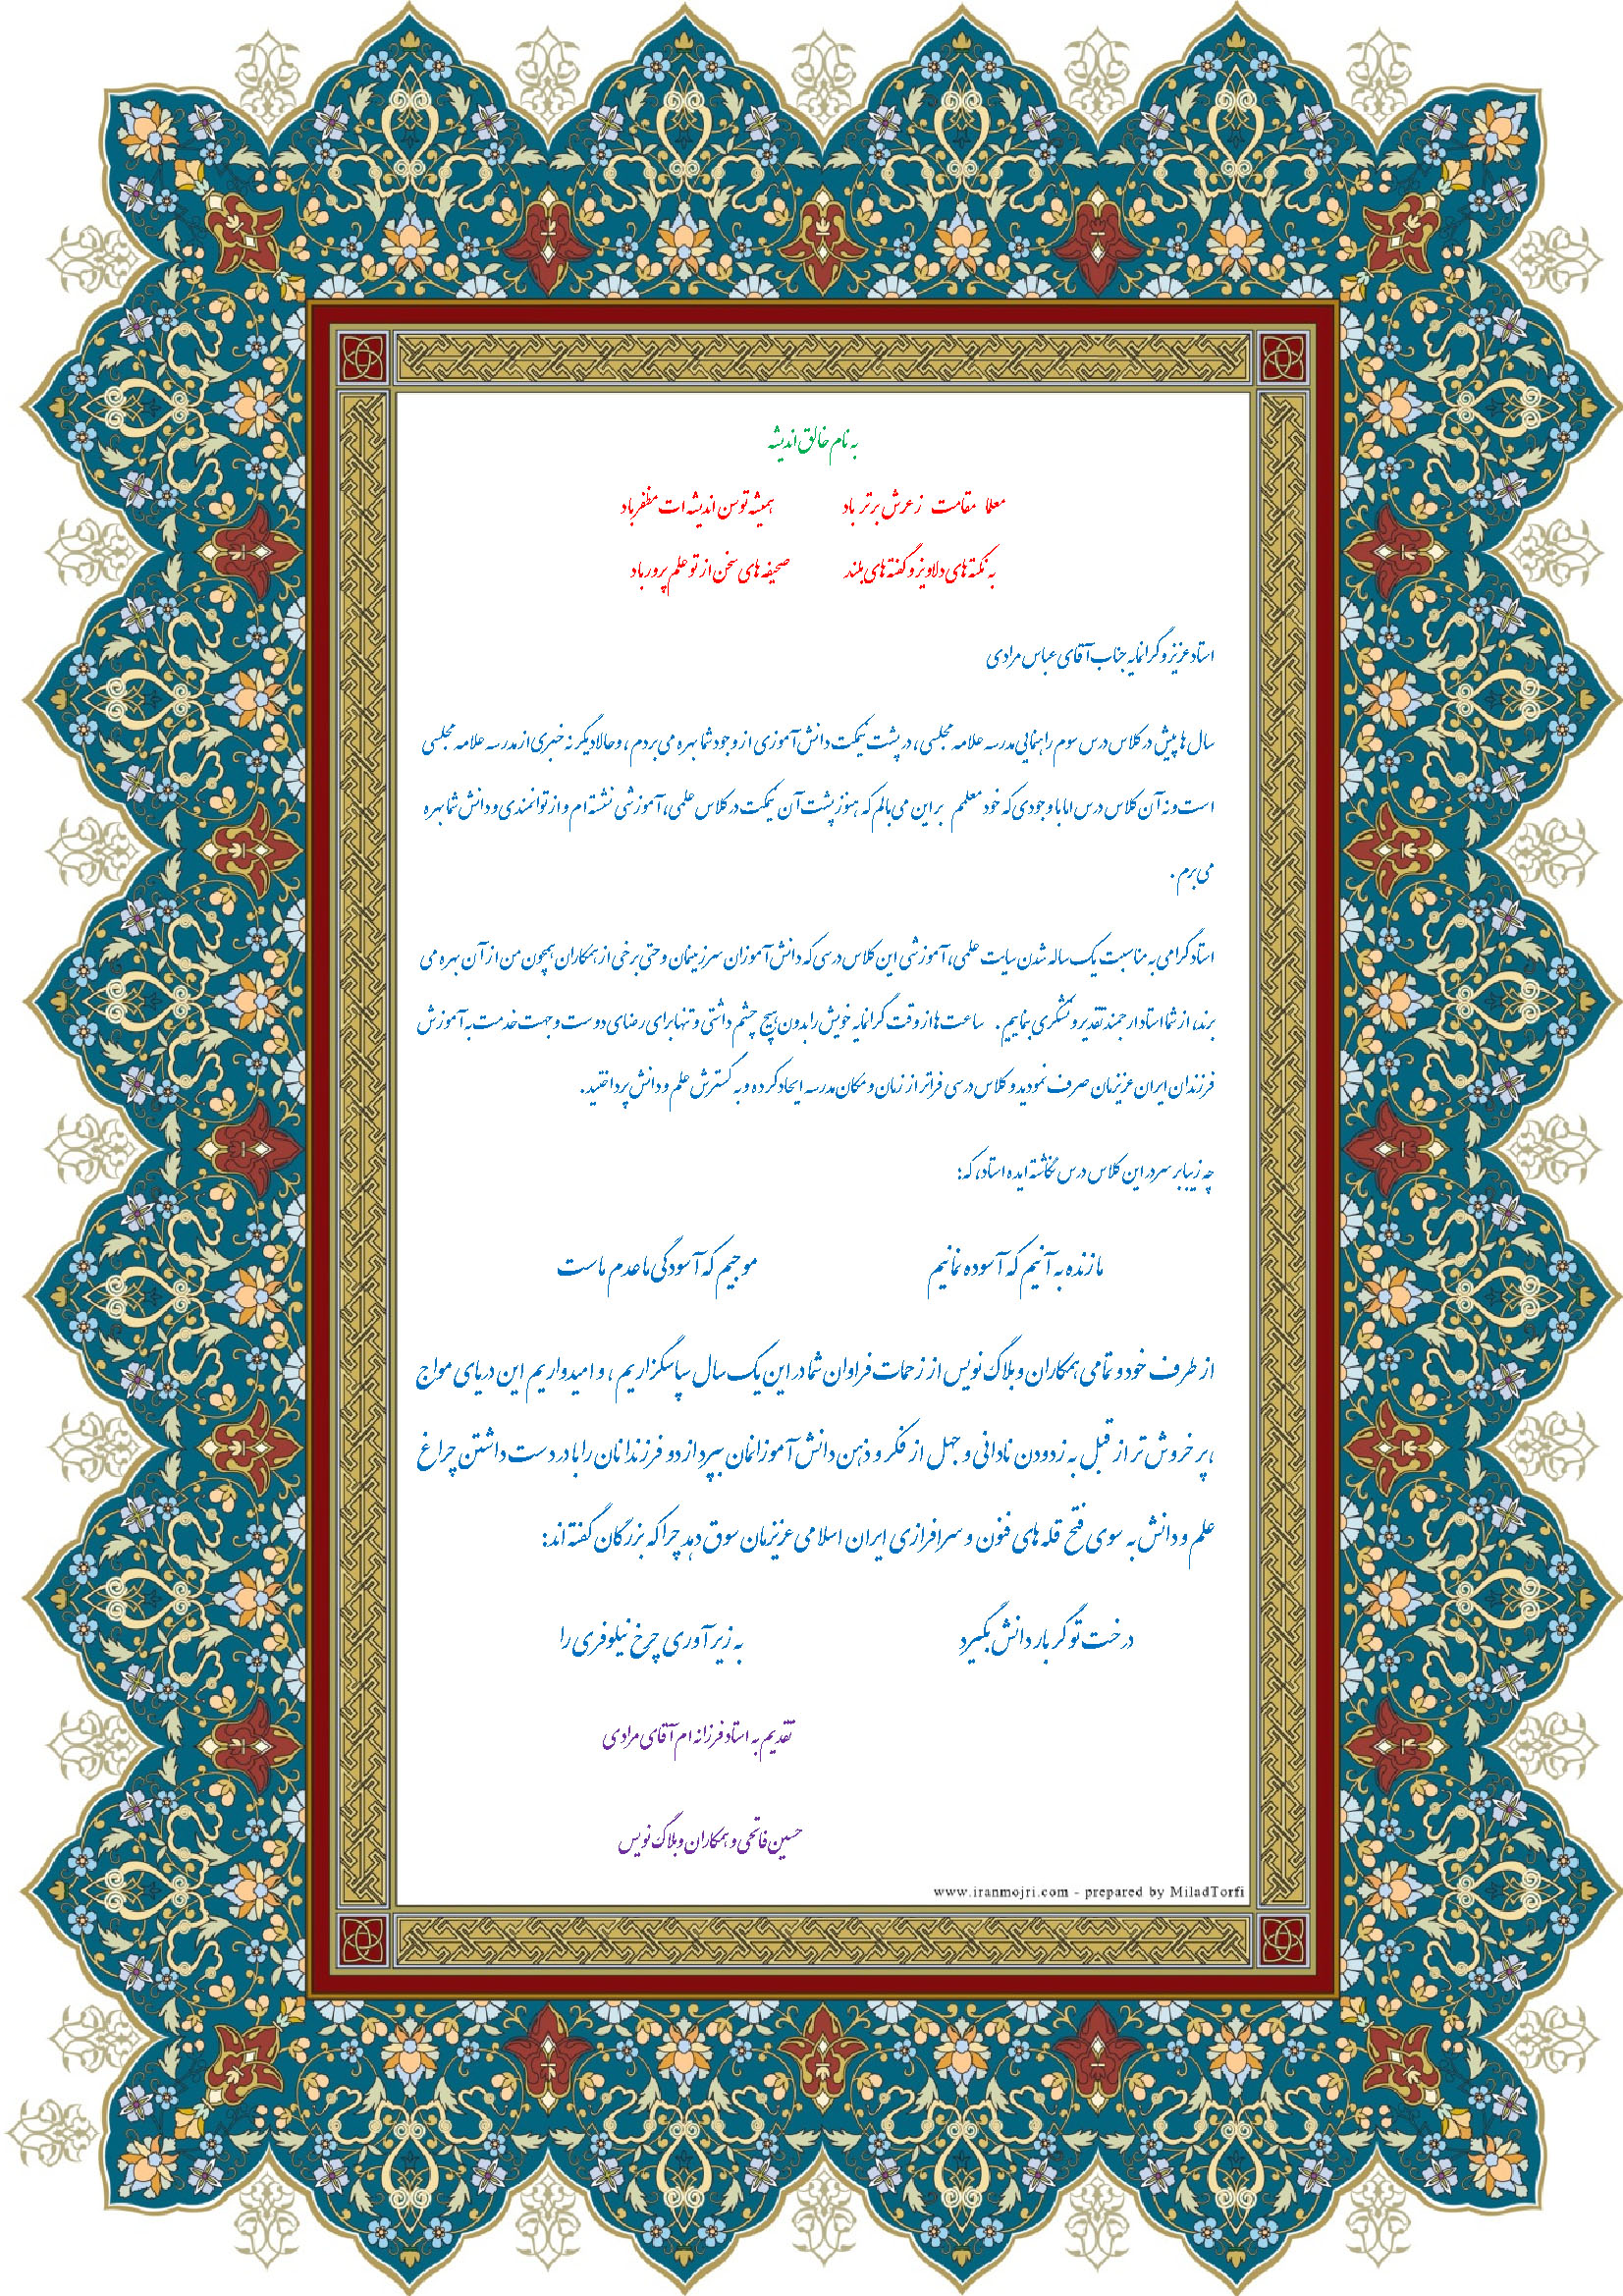 به نام خالق اندیشه
معلا مقامت ز عرش برتر باد همیشه توسن اندیشه ات مظفر باد
به نکته های دلاویز و گفته های بلند صحیفه های سخن از تو علم پرور باد
استاد عزیز و گرانمایه جناب آقای عباس مرادی
سال ها پیش در کلاس درس سوم راهنمایی مدرسه علامه مجلسی، در پشت نیمکت دانش آموزی از وجود شما بهره می بردم ، و حالا دیگر نه خبری از مدرسه علامه مجلسی
است و نه آن کلاس درس اما با وجودی که خود معلمم بر این می بالم که هنوز پشت آن نیمکت در کلاس علمی، آموزشی نشسته ام و از توانمندی و دانش شما بهره
می برم .
استاد گرامی به مناسبت یک ساله شدن سایت علمی، آموزشی این کلاس درسی که دانش آموزان سرزمینمان و حتی برخی از همکاران همچون من از آن بهره می
برند، از شما استاد ارجمند تقدیر و تشکری بنماییم . ساعت ها از وقت گرانمایه خویش را بدون هیچ چشم داشتی و تنها برای رضای دوست و جهت خدمت به آموزش
فرزندان ایران عزیزمان صرف نمودید و کلاس درسی فراتر از زمان و مکان مدرسه ایجاد کرده و به گسترش علم و دانش پرداختید.
چه زیبا بر سردر این کلاس درس نگاشته اید ه استاد، که:
ما زنده به آنیم که آسوده نمانیم موجیم که آسودگی ما عدم ماست
از طرف خود و تمامی همکاران وبلاگ نویس از زحمات فراوان شما در این یک سال سپاسگزاریم ، و امیدواریم این دریای مواج
،پر خروش تر از قبل به زدودن نادانی و جهل از فکر و ذهن دانش آموزانمان بپردازد و فرزندانمان را با در دست داشتن چراغ
علم و دانش به سوی فتح قله های فنون و سرافرازی ایران اسلامی عزیزمان سوق دهد چرا که بزرگان گفته اند:
درخت تو گر بار دانش بگیرد به زیر آوری چرخ نیلوفری را
تقدیم به استاد فرزانه ام آقای مرادی
حسین فاتحی و همکاران وبلاگ نویس
www.iranmojri.com - prepared by MiladTorfi